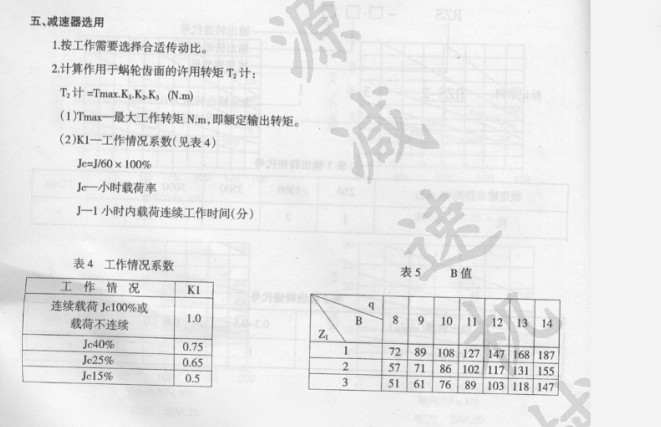 五、减速器选用
1.按工作需要选择合适传动比。
2.计算作用于蜗轮齿面的许用转矩 T₂计:
T₂计 =Tmax.K₁.K₂.K₃ (N.m)
(1)Tmax—最大工作转矩 N.m,即额定输出转矩。
(2)K1—工作情况系数(见表 4)
Jc=J/60 × 100%
Jc—小时载荷率
J—1 小时内载荷连续工作时间(分)
表 4 工作情况系数
工 作 情 况 K1
连续载荷 Jc100%或
载荷不连续 1.0
Jc40% 0.75
Jc25% 0.65
Jc15% 0.5
表 5 B 值
q
B
Z₁
8 9 10 11 12 13 14
1 72 89 108 127 147 168 187
2 57 71 86 102 117 131 155
3 51 61 76 89 103 118 147
源
减
速
机
械